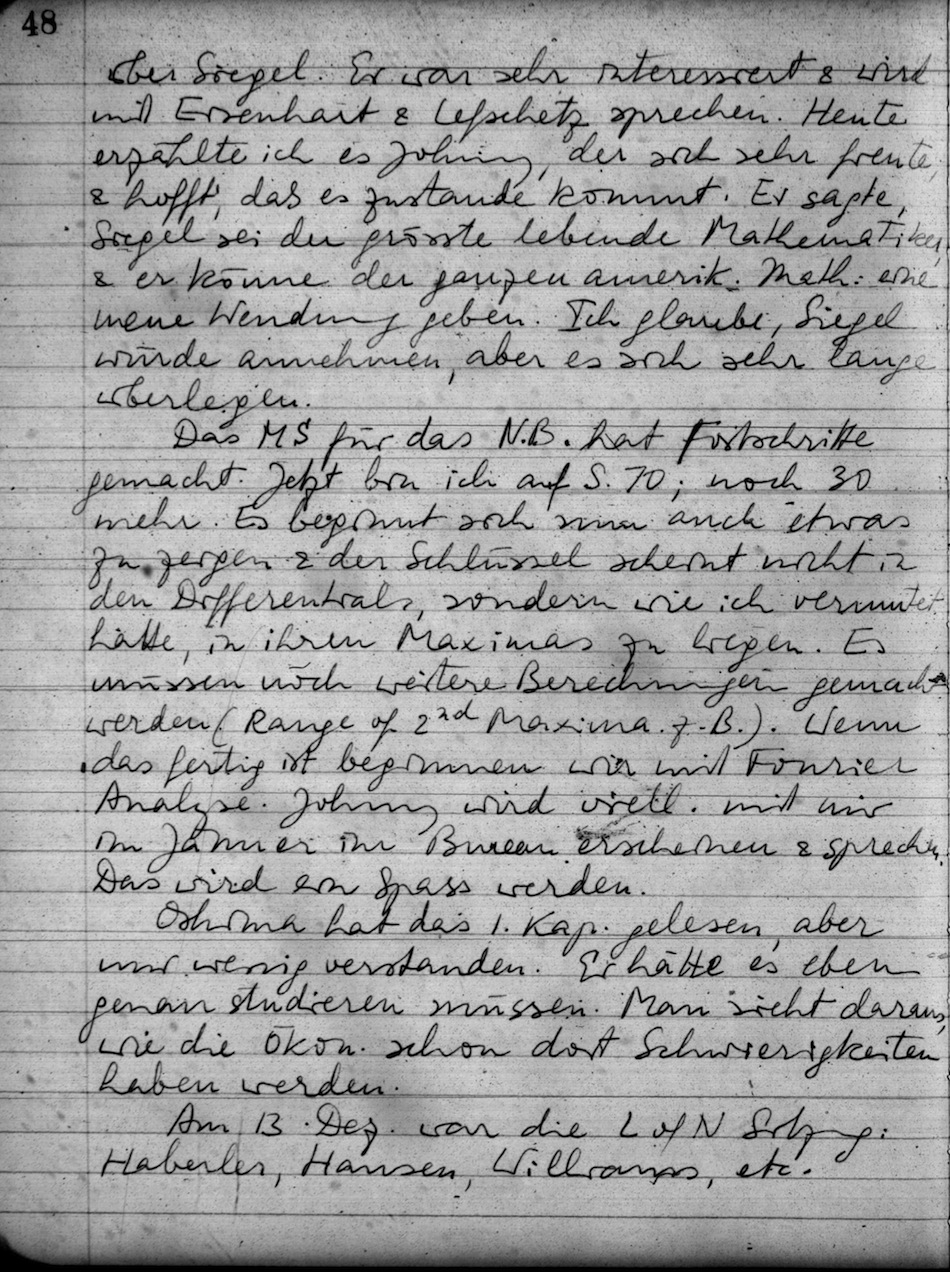 48
über Siegel. Er war sehr interessiert & wird
mit Eisenhart & Lefschetz sprechen. Heute
erzählte ich es Johnny, der sich sehr freute,
& hofft, das es zustande kommt. Er sagte,
Siegel sei der grösste lebende Mathematiker,
& er könne der ganzen amerik. Math. eine
neue Wendung geben. Ich glaube, Siegel
würde annehmen, aber es sich sehr lange
überlegen.
Das MS für das N.B. hat Fortschritte
gemacht. Jetzt bin ich auf S. 70; noch 30
mehr. Es beginnt sich nun auch etwas
zu zeigen & der Schlüssel scheint nicht in
den Differentials, sondern wie ich vermutet
hätte, in ihren Maximas zu liegen. Es
müssen noch weitere Berechnungen gemacht
werden (Range of 2nd Maxima z.B.). Wenn
das fertig ist beginnen wir mit Fourier
Analyse. Johnny wird vietl. mit mir
im Jänner im Bureau erscheinen & sprechen.
Das wird ein Spass werden.
Oshima hat das 1. Kap. gelesen, aber
nur wenig verstanden. Er hätte es eben
genau studieren müssen. Man sieht daraus,
wie die Ökon. schon dort Schwierigkeiten
haben werden.
Am 13. Dez. war die L of N Sitzung:
Haberler, Hansen, Williams, etc.